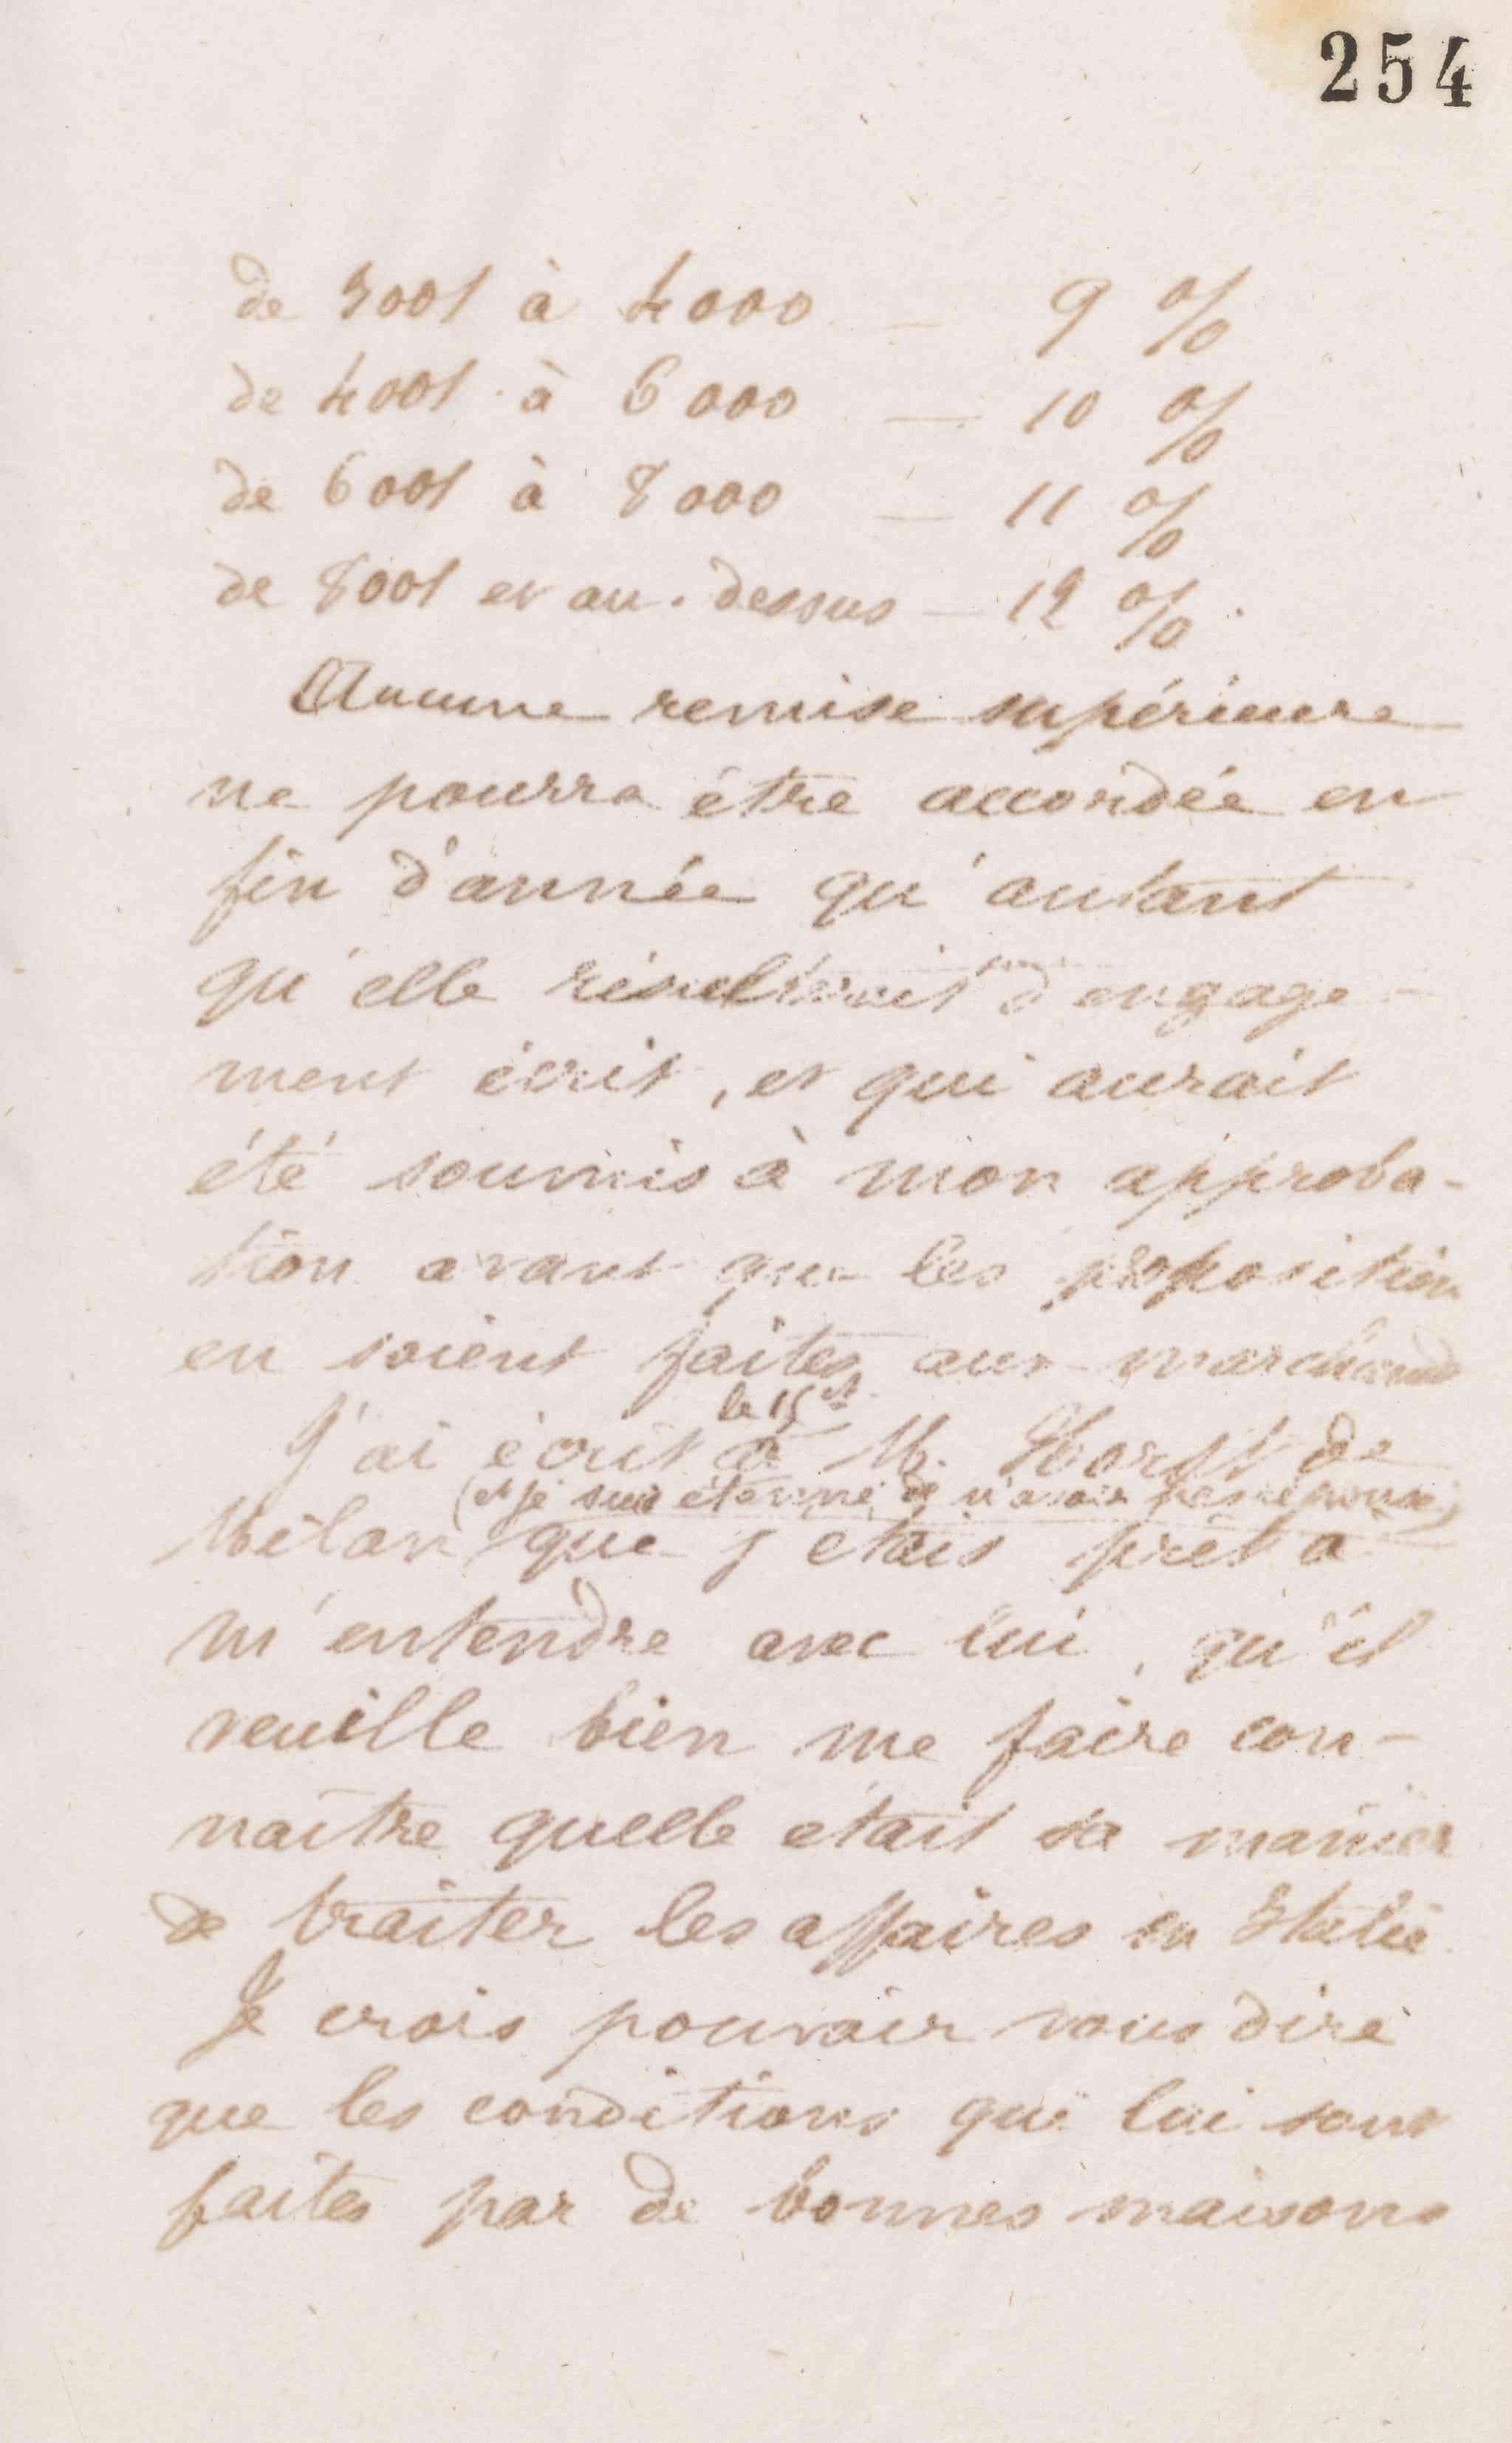 254
de 3001 à 4000 — 9 %
de 4001 à 6000 — 10 %
de 6001 à 8000 — 11 %
de 8001 et au-dessus — 12 %.
Aucune remise supérieure
ne pourra être accordée en
fin d'année qu'autant
qu'elle résulterait d'engage-
ment écrit, et qui aurait
été soumis à mon approba-
tion avant que les proposition
en soient faites aux marchands
le 15 ct
J'ai écrit à M. Horst de
(et je suis étonné de n'avoir pas réponse)
Milan que j'étais prêt à
m'entendre avec lui, qu'il
veuille bien me faire con-
naître quelle était sa manière
de traiter les affaires en Italie.
Je crois pouvoir vous dire
que les conditions qui lui sont
faites par de bonnes maisons